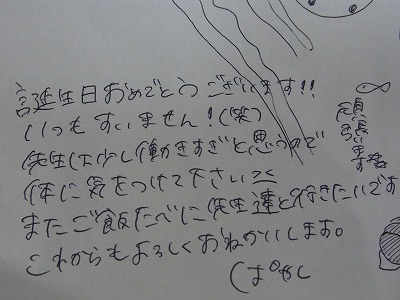 誕生日おめでとうございます!!
いつもすいません!(笑)
先生は少し働きすぎと思うので
体に気をつけて下さい><
またご飯たべに先生達と行きたいです
これからもよろしくおねがいします。
頑張ります